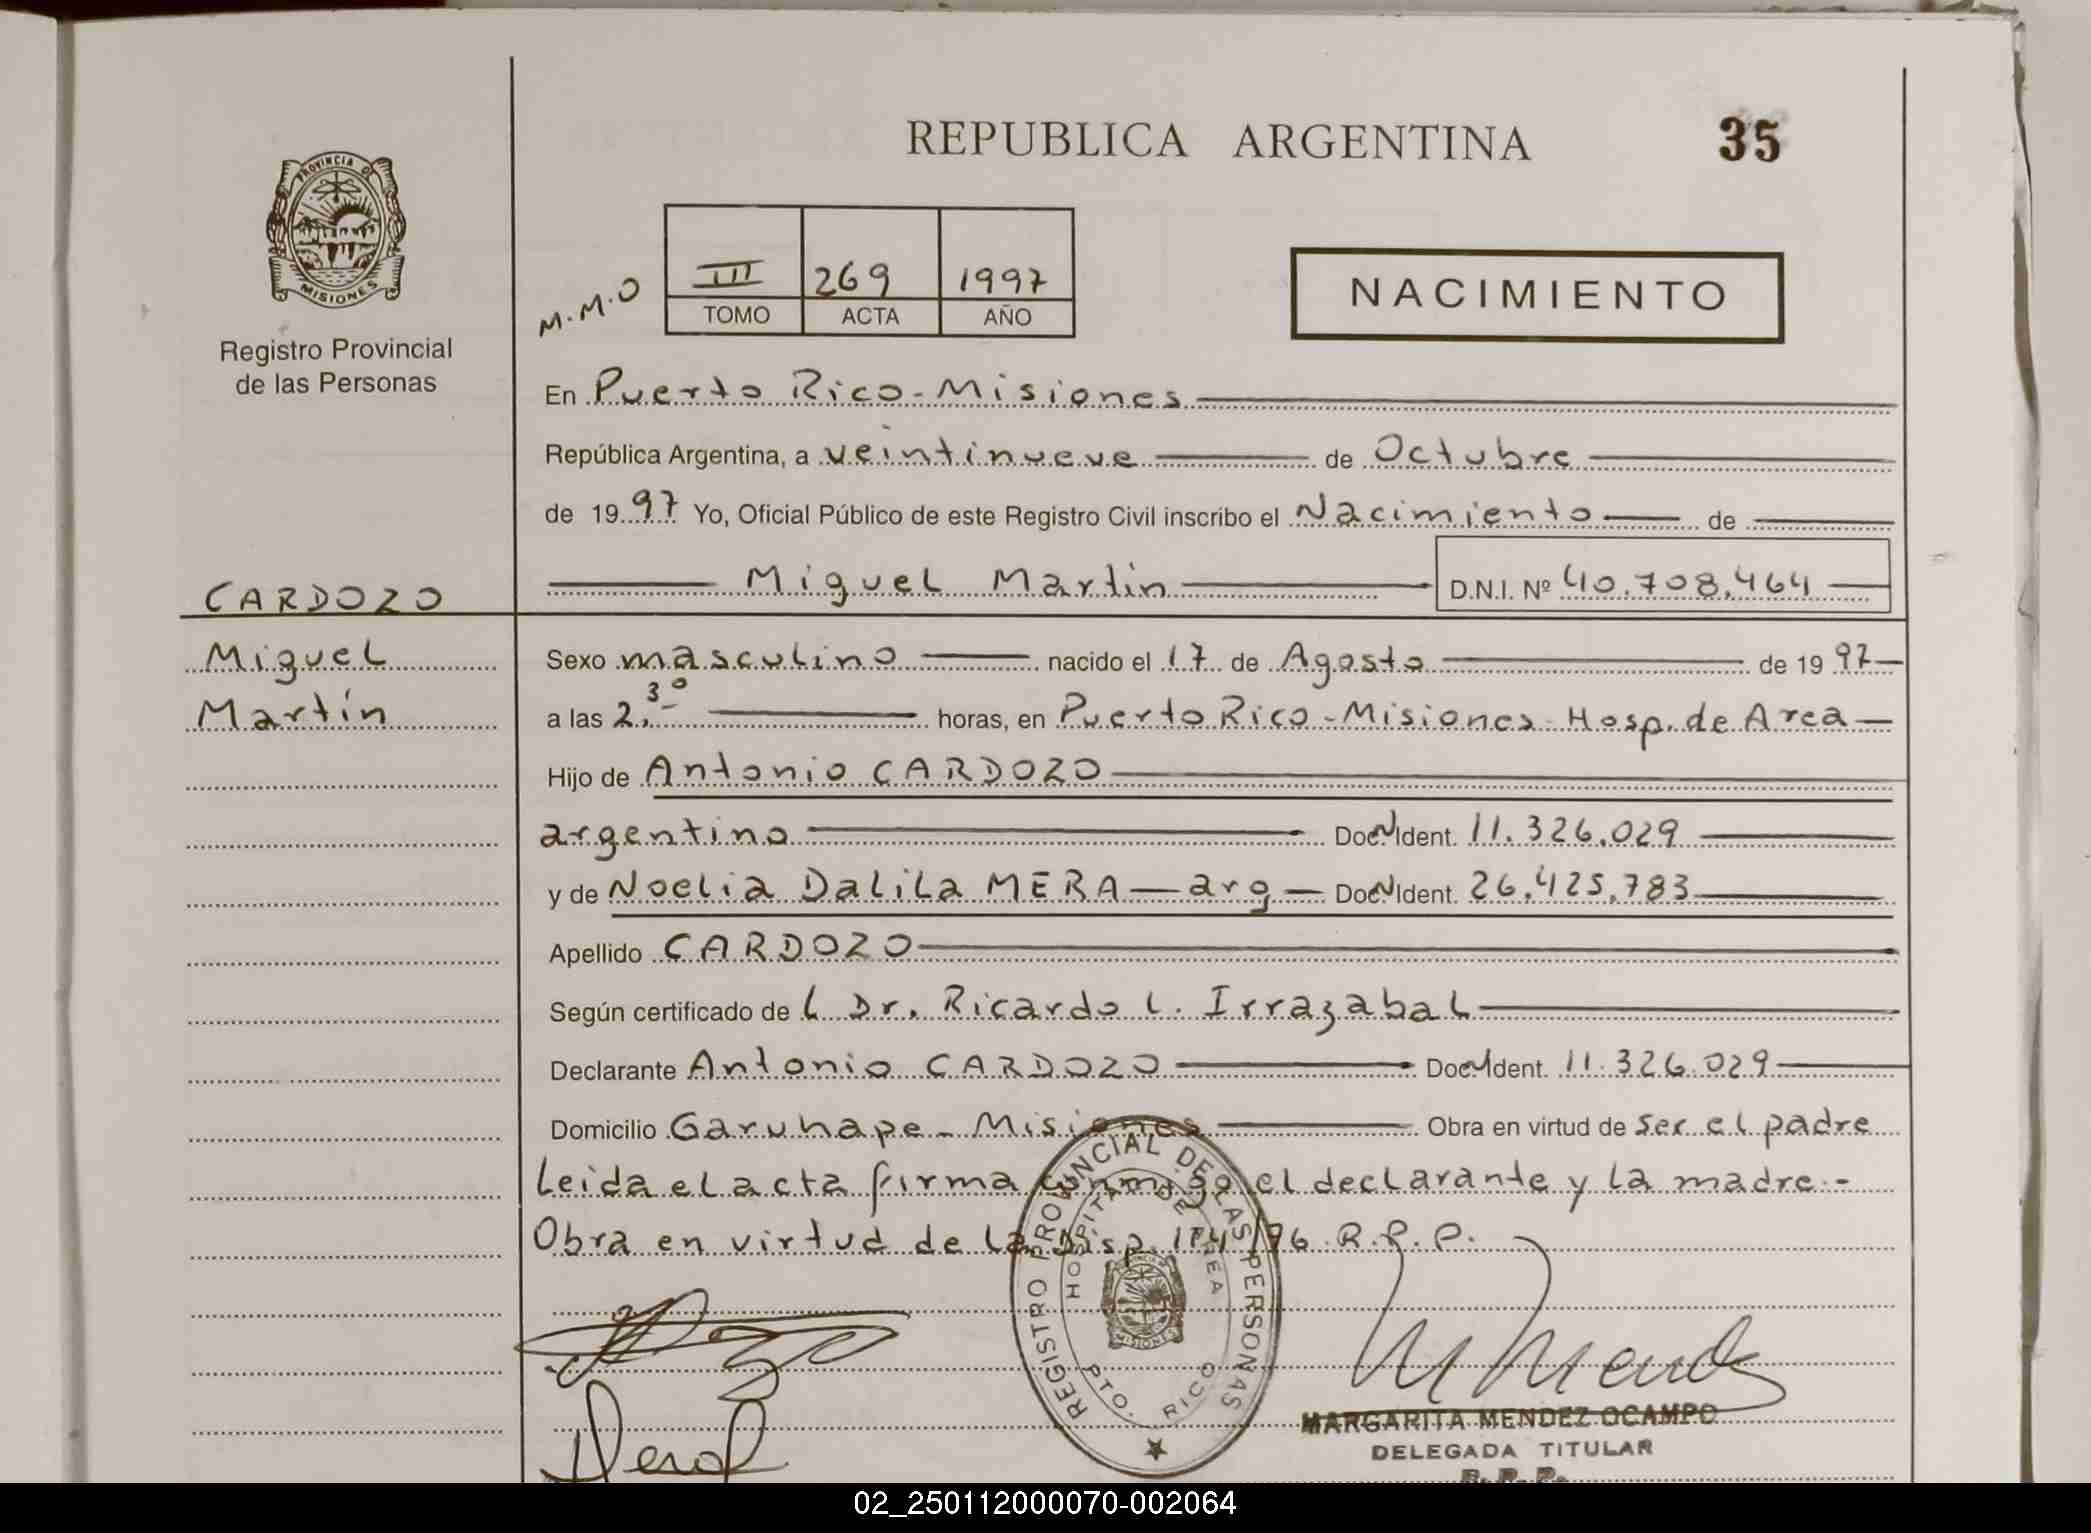 REPUBLICA ARGENTINA
35
PROVINCIA DE
MISIONES
Registro Provincial
de las Personas
M.M.O
III 269 1997
TOMO ACTA AÑO
NACIMIENTO
En Puerto Rico - Misiones
República Argentina, a veintinueve de Octubre
de 1997 Yo, Oficial Público de este Registro Civil inscribo el Nacimiento de
Miguel Martin D.N.I. Nº 40.708.464
CARDOZO
Miguel
Martín
Sexo masculino nacido el 17 de Agosto de 1997
a las 2,30 horas, en Puerto Rico - Misiones - Hosp. de Area
Hijo de Antonio CARDOZO
argentino Doc. N Ident. 11.326.029
y de Noelia Dalila MERA - arg - Doc. N Ident. 26.425.783
Apellido CARDOZO
Según certificado del Dr. Ricardo L. Irrazabal
Declarante Antonio CARDOZO Doc. N Ident. 11.326.029
Domicilio Garuhape - Misiones Obra en virtud de ser el padre
Leida el acta firma conmigo el declarante y la madre.-
Obra en virtud de la Disp. 174/96 R.P.P.
REGISTRO PROVINCIAL DE LAS PERSONAS
HOSPITAL DE AREA
MISIONES
PTO. RICO
MARGARITA MENDEZ OCAMPO
DELEGADA TITULAR
R.P.P.
02_250112000070-002064